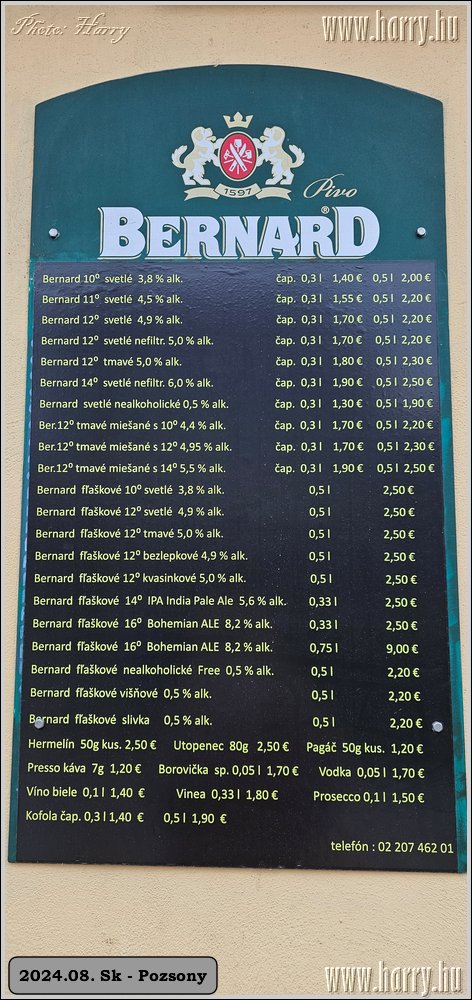 Photo: Harry
www.harry.hu
1597
Pivo
BERNARD®
Bernard 10° svetlé 3,8 % alk. čap. 0,3 l 1,40 € 0,5 l 2,00 €
Bernard 11° svetlé 4,5 % alk. čap. 0,3 l 1,55 € 0,5 l 2,20 €
Bernard 12° svetlé 4,9 % alk. čap. 0,3 l 1,70 € 0,5 l 2,20 €
Bernard 12° svetlé nefiltr. 5,0 % alk. čap. 0,3 l 1,70 € 0,5 l 2,20 €
Bernard 12° tmavé 5,0 % alk. čap. 0,3 l 1,80 € 0,5 l 2,30 €
Bernard 14° svetlé nefiltr. 6,0 % alk. čap. 0,3 l 1,90 € 0,5 l 2,50 €
Bernard svetlé nealkoholické 0,5 % alk. čap. 0,3 l 1,30 € 0,5 l 1,90 €
Ber.12° tmavé miešané s 10° 4,4 % alk. čap. 0,3 l 1,70 € 0,5 l 2,20 €
Ber.12° tmavé miešané s 12° 4,95 % alk. čap. 0,3 l 1,70 € 0,5 l 2,30 €
Ber.12° tmavé miešané s 14° 5,5 % alk. čap. 0,3 l 1,90 € 0,5 l 2,50 €
Bernard fľaškové 10° svetlé 3,8 % alk. 0,5 l 2,50 €
Bernard fľaškové 12° svetlé 4,9 % alk. 0,5 l 2,50 €
Bernard fľaškové 12° tmavé 5,0 % alk. 0,5 l 2,50 €
Bernard fľaškové 12° bezlepkové 4,9 % alk. 0,5 l 2,50 €
Bernard fľaškové 12° kvasinkové 5,0 % alk. 0,5 l 2,50 €
Bernard fľaškové 14° IPA India Pale Ale 5,6 % alk. 0,33 l 2,50 €
Bernard fľaškové 16° Bohemian ALE 8,2 % alk. 0,33 l 2,50 €
Bernard fľaškové 16° Bohemian ALE 8,2 % alk. 0,75 l 9,00 €
Bernard fľaškové nealkoholické Free 0,5 % alk. 0,5 l 2,20 €
Bernard fľaškové višňové 0,5 % alk. 0,5 l 2,20 €
Bernard fľaškové slivka 0,5 % alk. 0,5 l 2,20 €
Hermelín 50g kus. 2,50 € Utopenec 80g 2,50 € Pagáč 50g kus. 1,20 €
Presso káva 7g 1,20 € Borovička sp. 0,05 l 1,70 € Vodka 0,05 l 1,70 €
Víno biele 0,1 l 1,40 € Vinea 0,33 l 1,80 € Prosecco 0,1 l 1,50 €
Kofola čap. 0,3 l 1,40 € 0,5 l 1,90 €
telefón : 02 207 462 01
2024.08. Sk - Pozsony
www.harry.hu